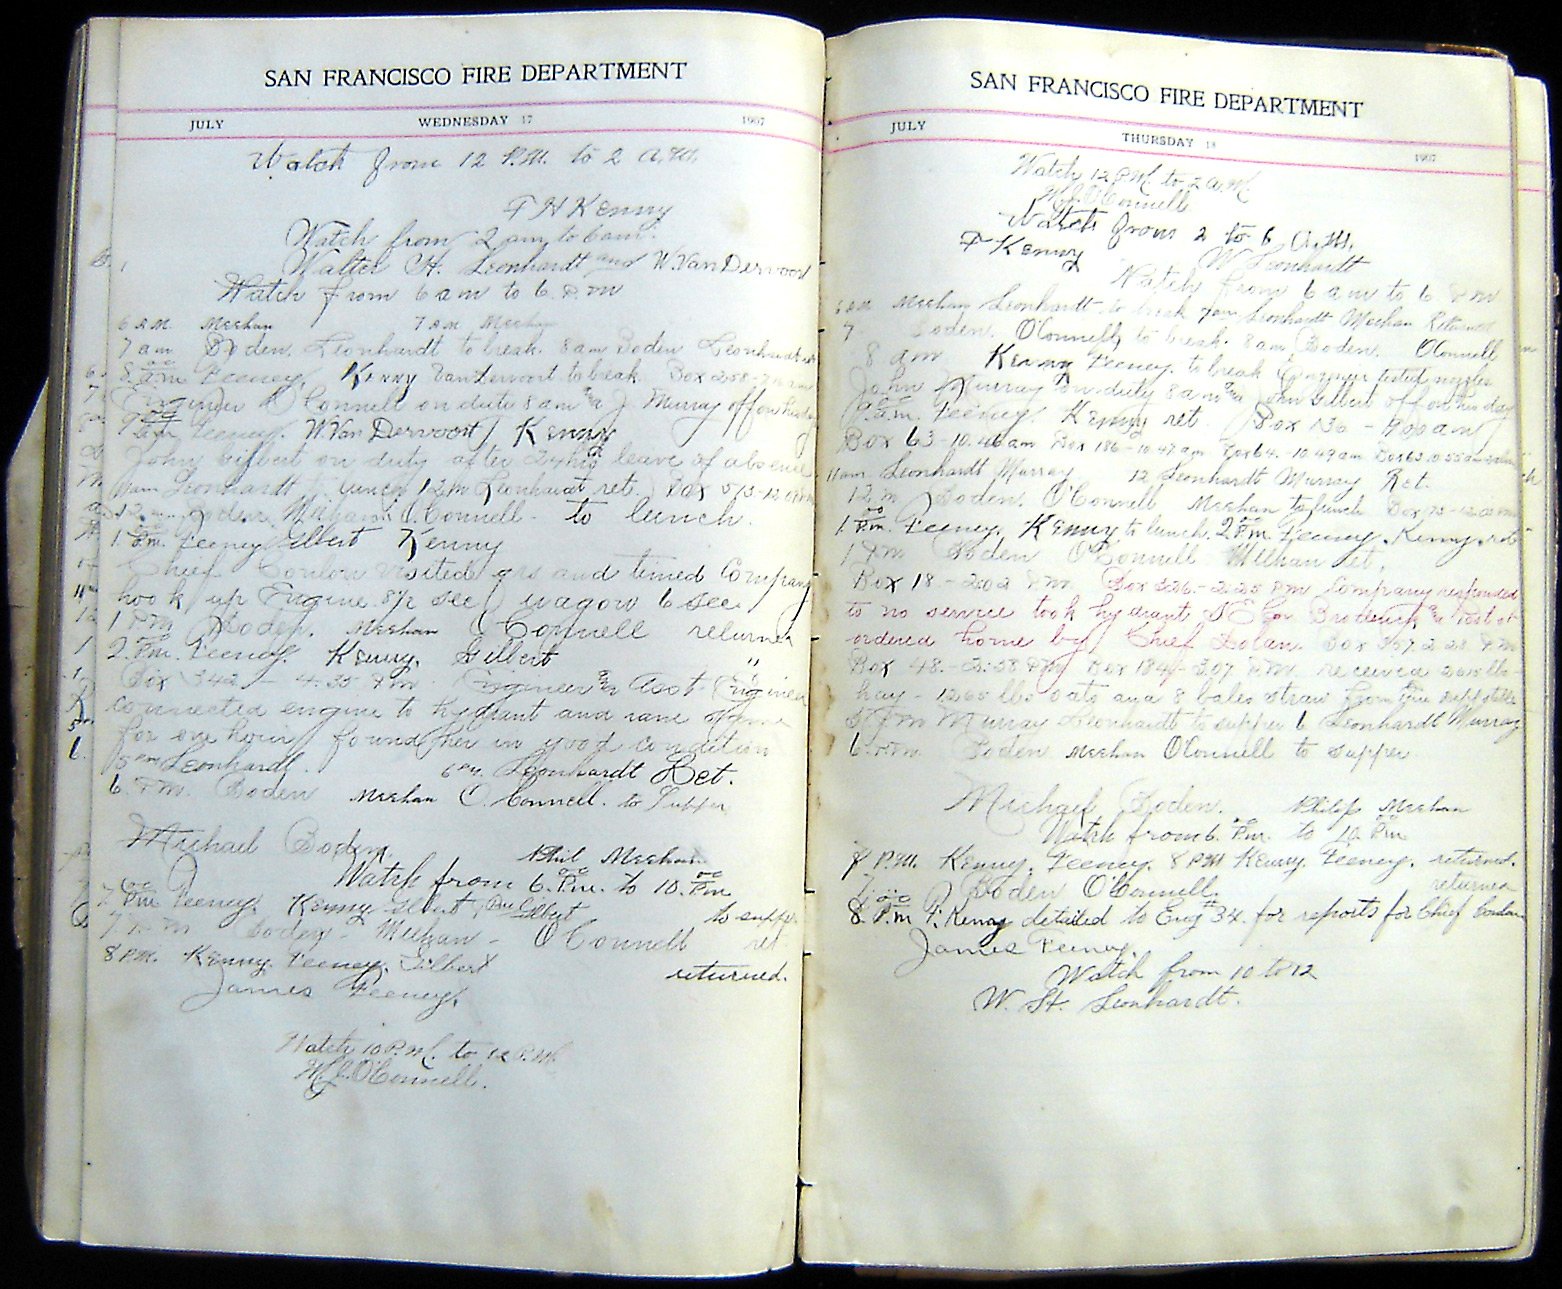 SAN FRANCISCO FIRE DEPARTMENT
JULY WEDNESDAY 17 1907
Watch from 12 P.M. to 2 A.M.
F H Kenny
Watch from 2 am to 6 am.
Walter H. Leonhardt and W. Van Dervoort
Watch from 6 am to 6. P.m
6 A.M. Meehan 7 A.M. Meehan
7 am Boden. Leonhardt to break. 8 am Boden Leonhardt
8 am Feeney. Kenny Van Dervoort to break Box 258-
Engineer O'Connell on duty 8 am J. Murray off on his day
9 am Feeney. W. Van Dervoort Kenny
John Gilbert on duty after 24 hrs leave of absence
11 am Leonhardt Lunch 12 M Leonhardt ret. Box 513-12
12 m Boden, O'Connell - to lunch.
1. P.m. Feeney Gilbert Kenny
Chief Conlon visited qrs and timed Company
hook up Engine 8 1/2 sec wagon 6 sec.
1 P.M Boden. Meehan O'Connell returned
2. P.m. Feeney. Kenny. Gilbert "
Box 342 - 4.35 P.m. Engineer & Asst Engineer
connected engine to hydrant and rane
for one hour found her in good condition
5 P.m Leonhardt. 6 P.m. Leonhardt Ret.
6. P.M. Boden Meehan O.Connell. to Supper
Michael Boden. Phil Meehan
Watch from 6. P.m. to 10. P.m
7. P.m Feeney. Kenny Gilbert to supper
7 P.m Boden - Meehan - O'Connell ret
8 P.M. Kenny. Feeney. Gilbert returned.
James Feeney.
Watch 10 P.M. to 12 P.M.
M.J. O'Connell.
SAN FRANCISCO FIRE DEPARTMENT
JULY THURSDAY 18 1907
Watch 12 P.M. to 2 A.M.
M.J. O'Connell
Watch from 2 to 6 A.M.
F Kenny W Leonhardt
Watch from 6 am to 6. P.m
6 A.M Meehan Leonhardt to break 7 am Leonhardt Meehan Returned
7. Boden. O'Connell to break. 8 am Boden. O'Connell
8 am Kenny Feeney. to break Engineer tested nozzles
John Murray on duty 8 am John Gilbert off on his day
9. a.m. Feeney. Kenny ret. Box 136 - 9.00 am
Box 63-10.46 am Box 186-10.47 am Box 64.-10.49 am Box 63 10.55 am
11 am Leonhardt Murray 12 Leonhardt Murray Ret.
12 m Boden. O'Connell Meehan to lunch Box 73-
1. P.m. Feeney. Kenny to lunch. 2 P.m. Feeney. Kenny. ret
1 P.m Boden O'Connell Meehan ret.
Box 18 - 2.02 P.m. Box 226.-2.25 P.m Company responded
to no service took hydrant S E Cor Broderick & Post st
ordered home by Chief Dolan. Box 357. 2.28 P.m
Box 48.-2:58 P.m Box 184-3.07 P.m. received 2015 lbs
hay - 1265 lbs oats and 8 bales straw from Fire Dept stable
5 P.m Murray Leonhardt to supper 6 Leonhardt Murray
6. P.M. Boden Meehan O'Connell to supper
Michael Boden. Philip Meehan
Watch from 6. P.m. to 10. P.m
7 P.M. Kenny. Feeney. 8 P.M Kenny. Feeney. returned.
7. Boden O'Connell. returned
8. P.m F. Kenny detailed to Eng 34. for reports for Chief Conlon
James Feeney.
Watch from 10 to 12
W. H. Leonhardt.